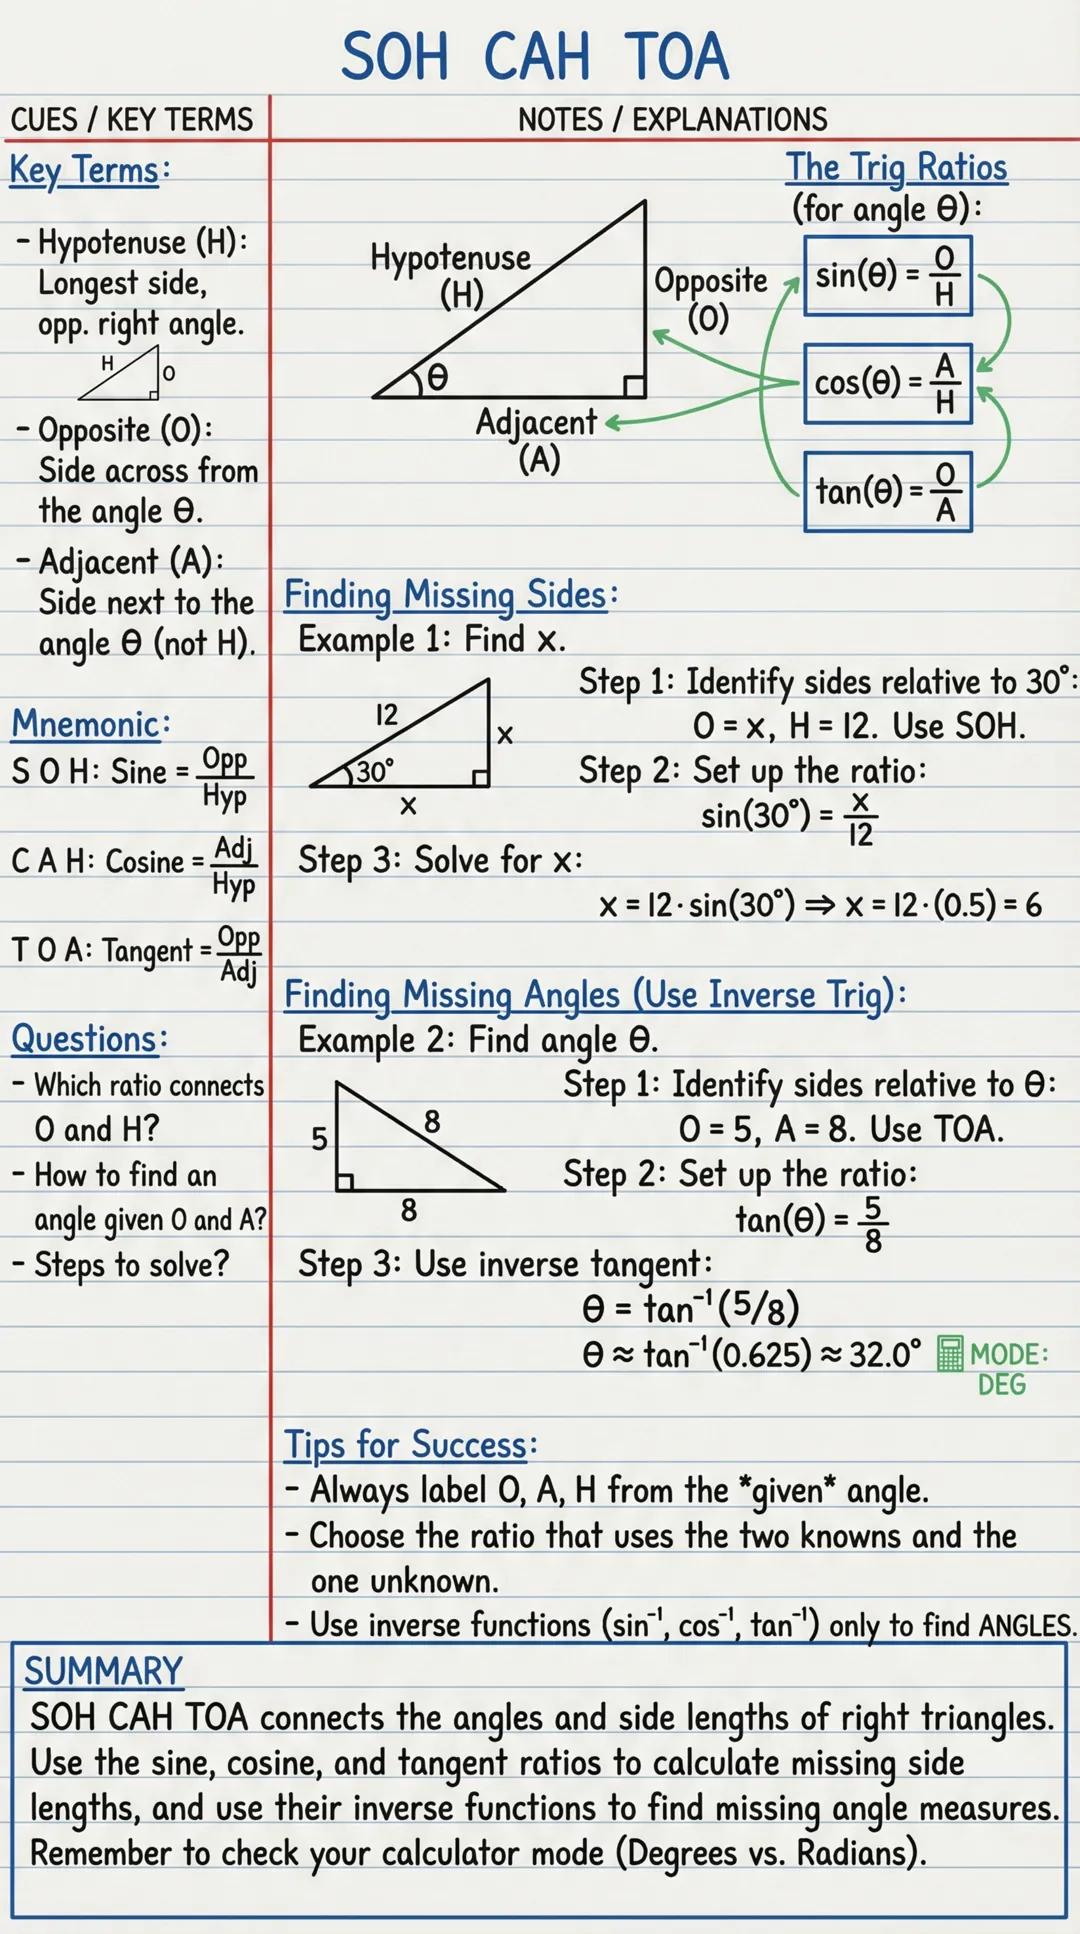 SOH CAH TOA
CUES / KEY TERMS
NOTES / EXPLANATIONS
Key Terms:
- Hypotenuse (H):
Longest side,
opp. right angle.
H
O
- Opposite (O):
Side across from
the angle θ.
- Adjacent (A):
Side next to the
angle θ (not H).
Mnemonic:
S O H: Sine = Opp/Hyp
C A H: Cosine = Adj/Hyp
T O A: Tangent = Opp/Adj
Questions:
- Which ratio connects
O and H?
- How to find an
angle given O and A?
- Steps to solve?
Hypotenuse
(H)
Opposite
(O)
θ
Adjacent
(A)
The Trig Ratios
(for angle θ):
sin(θ) = O/H
cos(θ) = A/H
tan(θ) = O/A
Finding Missing Sides:
Example 1: Find x.
12
x
30°
x
Step 1: Identify sides relative to 30°:
O = x, H = 12. Use SOH.
Step 2: Set up the ratio:
sin(30°) = x/12
Step 3: Solve for x:
x = 12 · sin(30°) ⇒ x = 12 · (0.5) = 6
Finding Missing Angles (Use Inverse Trig):
Example 2: Find angle θ.
5
8
8
Step 1: Identify sides relative to θ:
O = 5, A = 8. Use TOA.
Step 2: Set up the ratio:
tan(θ) = 5/8
Step 3: Use inverse tangent:
θ = tan⁻¹(5/8)
θ ≈ tan⁻¹(0.625) ≈ 32.0°
MODE:
DEG
Tips for Success:
- Always label O, A, H from the *given* angle.
- Choose the ratio that uses the two knowns and the
one unknown.
- Use inverse functions (sin⁻¹, cos⁻¹, tan⁻¹) only to find ANGLES.
SUMMARY
SOH CAH TOA connects the angles and side lengths of right triangles.
Use the sine, cosine, and tangent ratios to calculate missing side
lengths, and use their inverse functions to find missing angle measures.
Remember to check your calculator mode (Degrees vs. Radians).